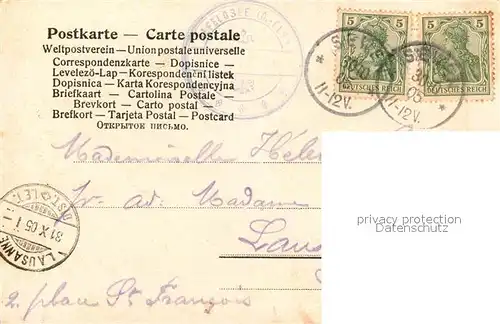 Postkarte – Carte postale
Weltpostverein – Union postale universelle
Correspondenzkarte – Dopisnice –
Levelező-Lap – Korespondenční listek
Dopisnica – Karta Korespondencyjna
Briefkaart – Cartolina Postale –
Brevkort – Carto postal –
Brefkort – Tarjeta Postal – Postcard
ОТКРЫТОЕ ПИСЬМО.
5 5
DEUTSCHES REICH
5 5
DEUTSCHES REICH
11-12V.
11-12V.
Mademoiselle
pr. ad. Madame
LAUSANNE
31.X.05
2. place St François
privacy protection
www.oldthing.de